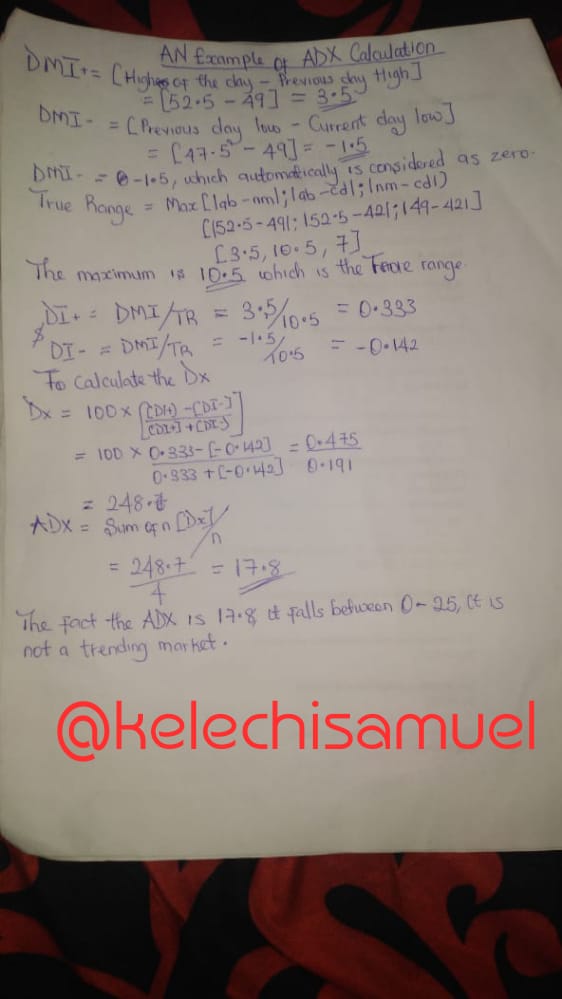 AN Example of ADX Calculation
DMI+ = [Highes of the day - Previous day High]
= [52.5 - 49] = 3.5
DMI- = [Previous day low - Current day low]
= [47.5 - 49] = -1.5
DMI- = -1.5, which automatically is considered as zero.
True Range = Max[|ab-nm|; |ab-cd|; |nm-cd|)
[|52.5-49|; |52.5-42|; |49-42|]
[3.5, 10.5, 7]
The maximum is 10.5 which is the range.
DI+ = DMI/TR = 3.5/10.5 = 0.333
$ DI- = DMI/TR = -1.5/10.5 = -0.142
To Calculate the Dx
Dx = 100 × [[DI+) - [DI-]
[CDI+] + [DI-]]
= 100 × 0.333-[-0.142] = 0.475
0.333 + [-0.142] 0.191
= 248.7
ADX = Sum of n [Dx]/n
= 248.7 = 17.8
4
The fact the ADX is 17.8 it falls between 0-25, it is
not a trending market.
@kelechisamuel